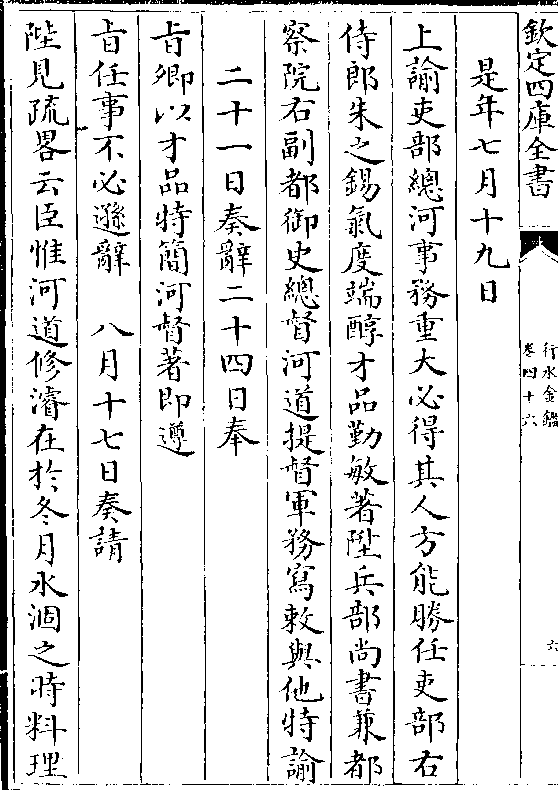 欽定四庫全書
行水金鑑
卷四十六
六
是年七月十九日
上諭吏部總河事務重大必得其人方能勝任吏部右
侍郎朱之錫氣度端醇才品勤敏著陞兵部尚書兼都
察院右副都御史總督河道提督軍務寫敕與他特諭
二十一日奏辭二十四日奉
㫖卿以才品特簡河督著即遵
㫖任事不必遜辭 八月十七日奏請
陛見疏畧云臣惟河道修濬在於冬月水涸之時料理